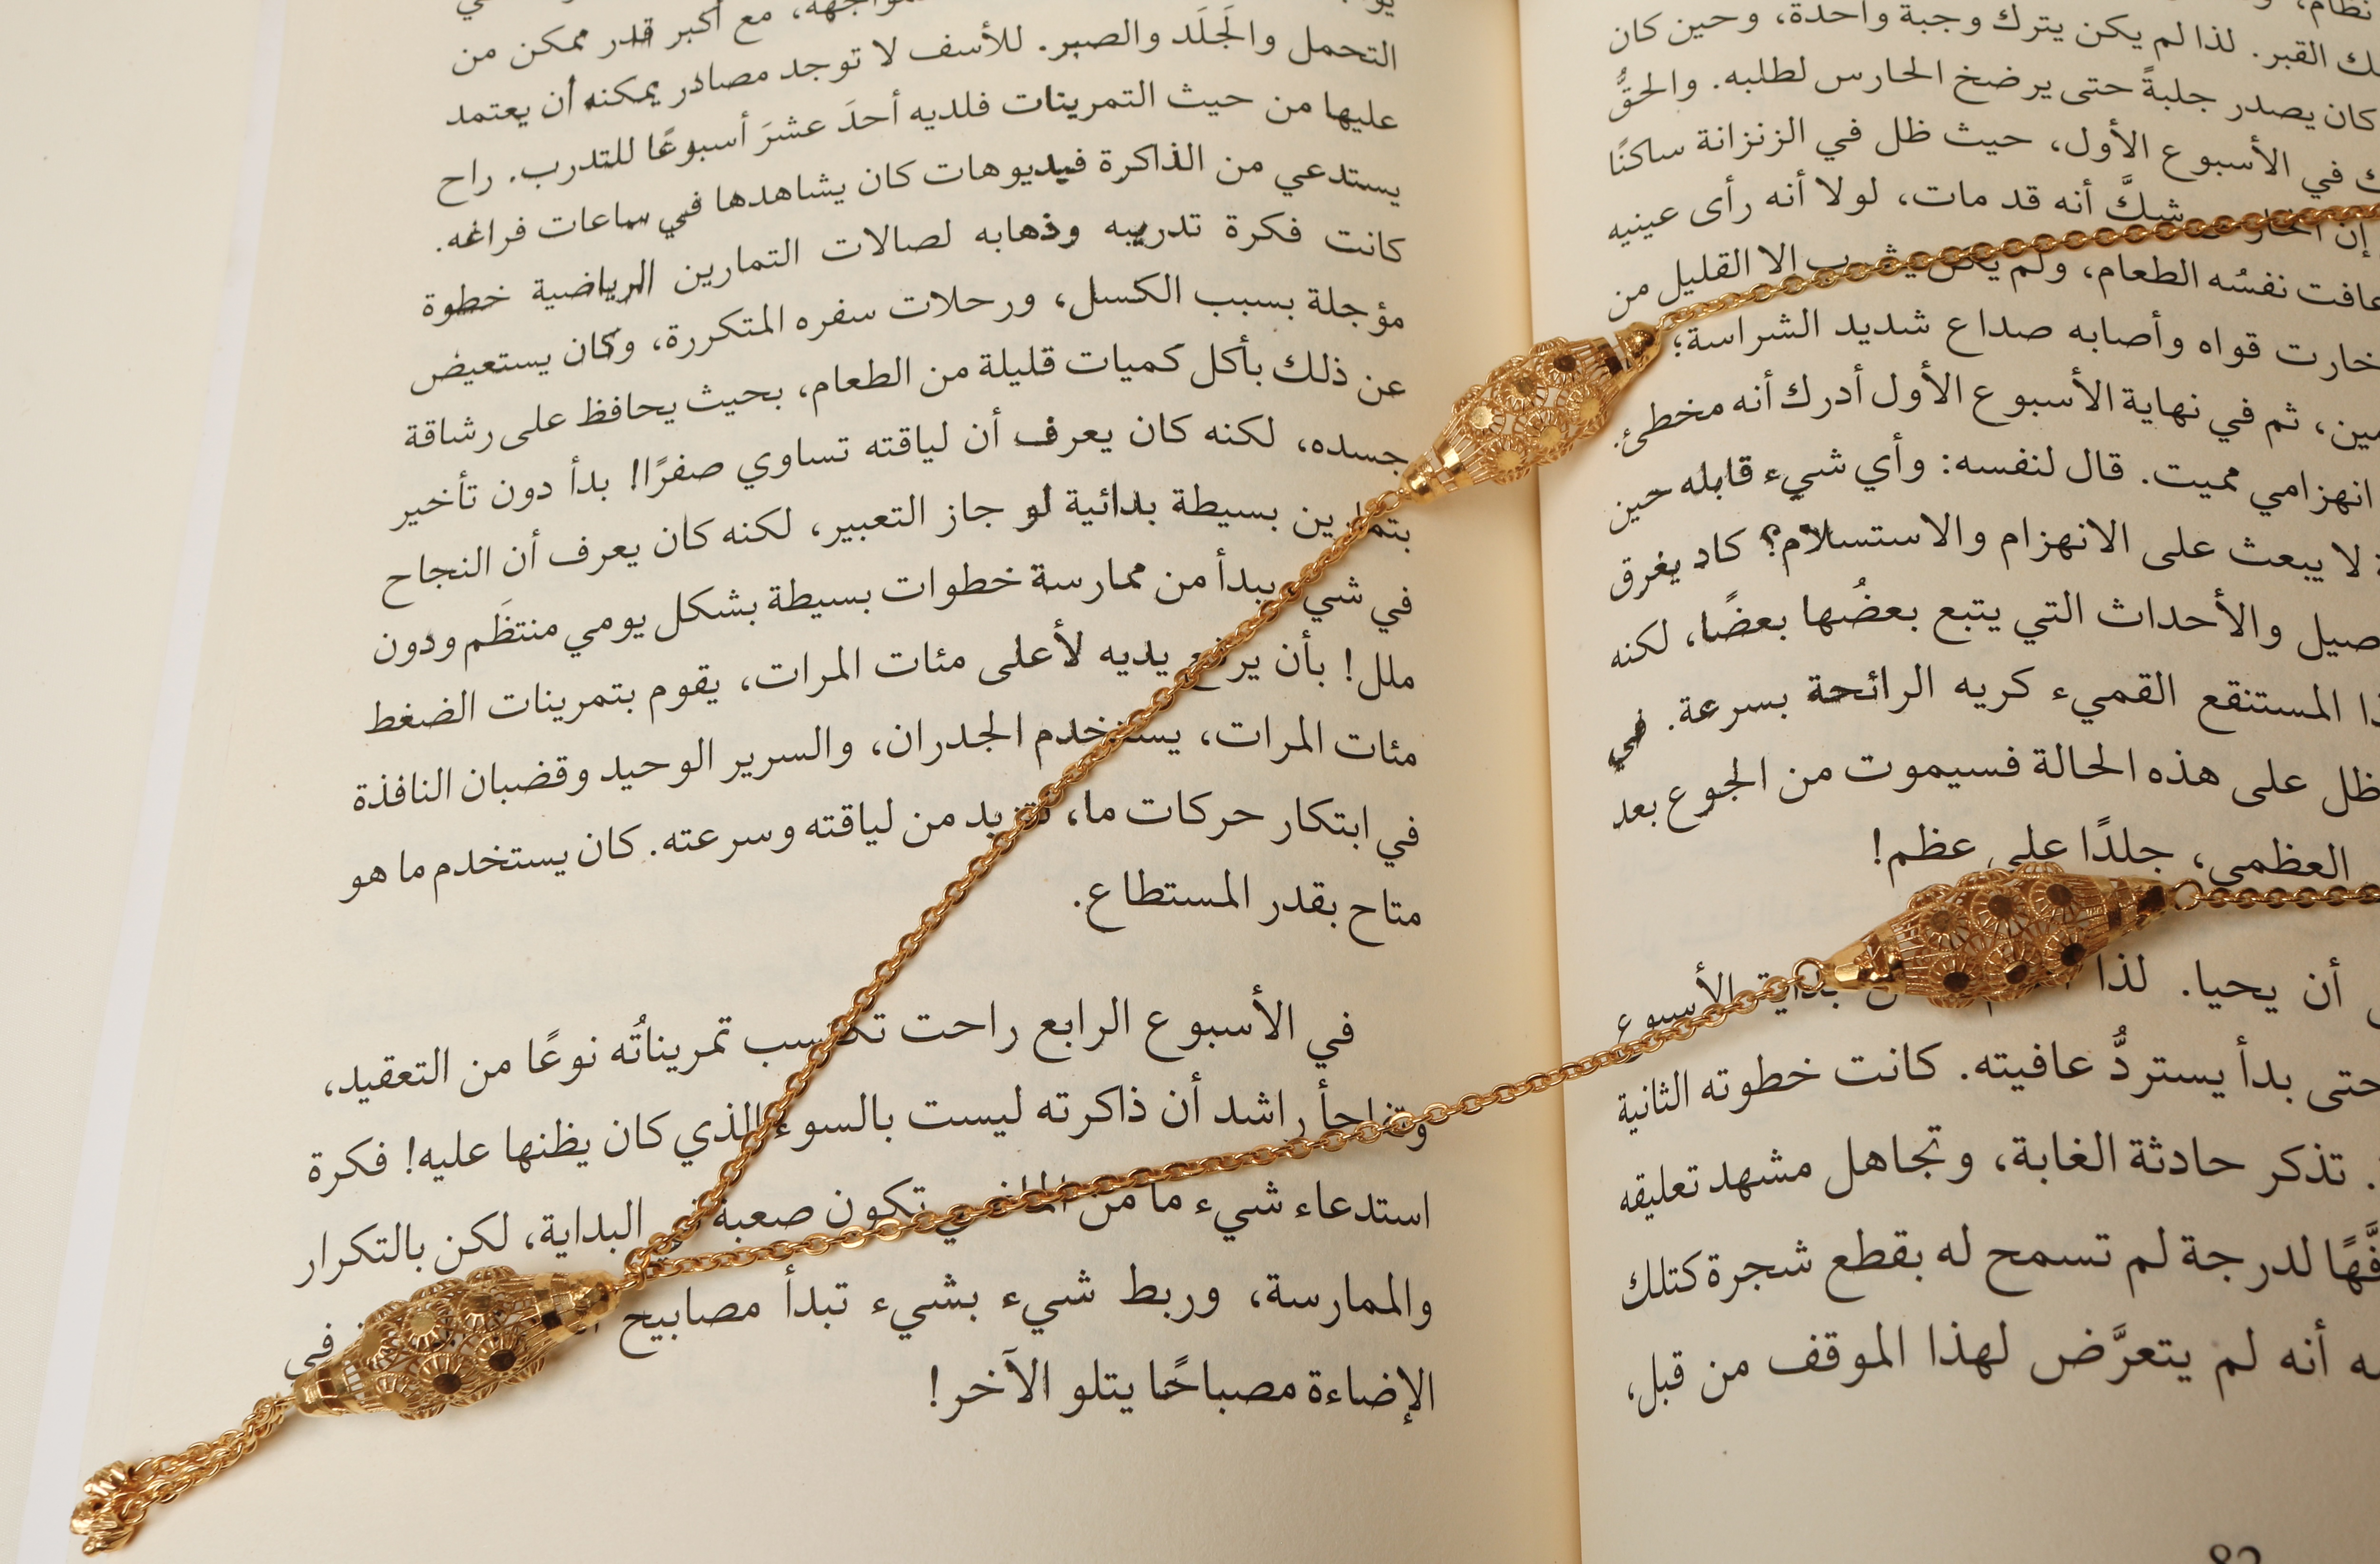 نظام،
ك القبر. لذا لم يكن يترك وجبة واحدة، وحين كان
كان يصدر جلبةً حتى يرضخ الحارس لطلبه. والحقُّ
في الأسبوع الأول، حيث ظل في الزنزانة ساكنًا
إن شكَّ أنه قد مات، لولا أنه رأى عينيه
عافت نفسُه الطعام، ولم يكن يشرب إلا القليل من
خارت قواه وأصابه صداع شديد الشراسة؛
ثم في نهاية الأسبوع الأول أدرك أنه مخطئ.
انهزامي مميت. قال لنفسه: وأي شيء قابله حين
لا يبعث على الانهزام والاستسلام؟ كاد يغرق
والأحداث التي يتبع بعضُها بعضًا، لكنه
المستنقع القميء كريه الرائحة بسرعة. في
ظل على هذه الحالة فسيموت من الجوع بعد
العظمي، جلدًا على عظم!
أن يحيا. لذا بداية الأسبوع
حتى بدأ يستردُّ عافيته. كانت خطوته الثانية
تذكر حادثة الغابة، وتجاهل مشهد تعليقه
لدرجة لم تسمح له بقطع شجرة كتلك
أنه لم يتعرَّض لهذا الموقف من قبل،
مع أكبر قدر ممكن من
التحمل والجَلَد والصبر. للأسف لا توجد مصادر يمكنه أن يعتمد
عليها من حيث التمرينات فلديه أحدَ عشرَ أسبوعًا للتدرب. راح
يستدعي من الذاكرة فيديوهات كان يشاهدها في ساعات فراغه.
كانت فكرة تدريبه وذهابه لصالات التمارين الرياضية خطوة
مؤجلة بسبب الكسل، ورحلات سفره المتكررة، وكان يستعيض
عن ذلك بأكل كميات قليلة من الطعام، بحيث يحافظ على رشاقة
جسده، لكنه كان يعرف أن لياقته تساوي صفرًا! بدأ دون تأخير
بتمارين بسيطة بدائية لو جاز التعبير، لكنه كان يعرف أن النجاح
في شيء يبدأ من ممارسة خطوات بسيطة بشكل يومي منتظَم ودون
ملل! بأن يرفع يديه لأعلى مئات المرات، يقوم بتمرينات الضغط
مئات المرات، يستخدم الجدران، والسرير الوحيد وقضبان النافذة
في ابتكار حركات ما، تزيد من لياقته وسرعته. كان يستخدم ما هو
متاح بقدر المستطاع.
في الأسبوع الرابع راحت تكتسب تمريناتُه نوعًا من التعقيد،
وتفاجأ راشد أن ذاكرته ليست بالسوء الذي كان يظنها عليه! فكرة
استدعاء شيء ما من الماضي تكون صعبة في البداية، لكن بالتكرار
والممارسة، وربط شيء بشيء تبدأ مصابيح في
الإضاءة مصباحًا يتلو الآخر!